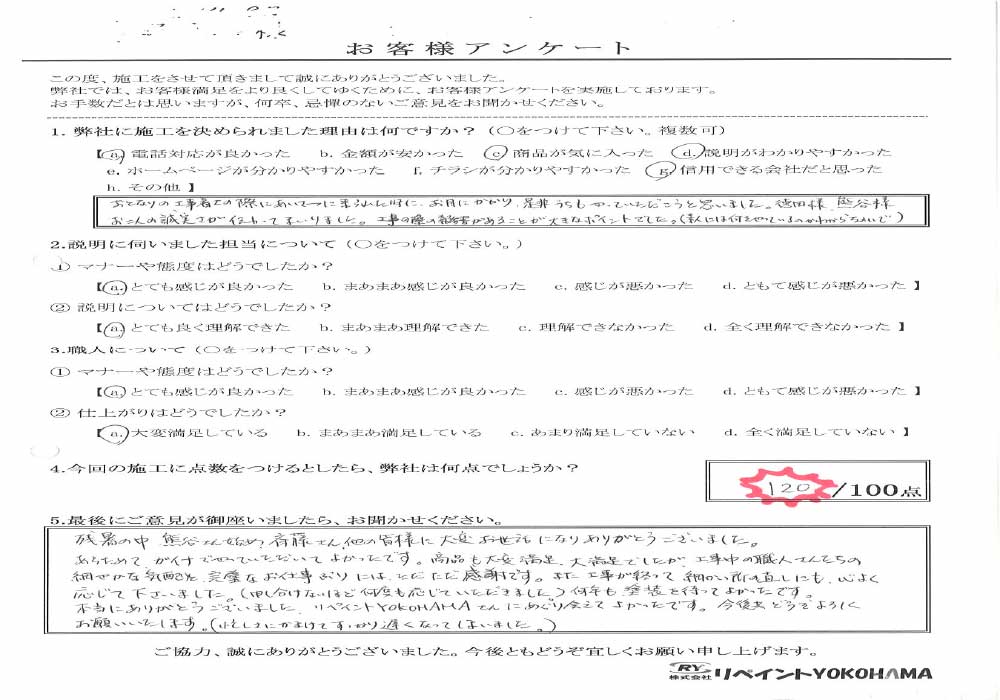 お客様アンケート
この度、施工をさせて頂きまして誠にありがとうございました。
弊社では、お客様満足をより良くしてゆくために、お客様アンケートを実施しております。
お手数だとは思いますが、何卒、忌憚のないご意見をお聞かせください。
1. 弊社に施工を決められました理由は何ですか？（○をつけて下さい。複数可）
【a. 電話対応が良かった b. 金額が安かった c. 商品が気に入った d. 説明がわかりやすかった
e. ホームページが分かりやすかった f. チラシが分かりやすかった g. 信用できる会社だと思った
h. その他 】
おとなりの工事の際にあいさつに来られた時に、お目にかかり、是非うちもやっていただこうと思いました。徳田様、熊谷様
お二人の誠実さが伝わってまいりました。工事の際の報告があることが大きなポイントでした。(私には何をやっているのかわからないので)
2.説明に伺いました担当について（○をつけて下さい。）
① マナーや態度はどうでしたか？
【a. とても感じが良かった b. まあまあ感じが良かった c. 感じが悪かった d. ともて感じが悪かった 】
② 説明についてはどうでしたか？
【a. とても良く理解できた b. まあまあ理解できた c. 理解できなかった d. 全く理解できなかった 】
3.職人について（○をつけて下さい。）
① マナーや態度はどうでしたか？
【a. とても感じが良かった b. まあまあ感じが良かった c. 感じが悪かった d. ともて感じが悪かった 】
② 仕上がりはどうでしたか？
【a. 大変満足している b. まあまあ満足している c. あまり満足していない d. 全く満足していない 】
4.今回の施工に点数をつけるとしたら、弊社は何点でしょうか？
120/100点
5.最後にご意見が御座いましたら、お聞かせください。
残暑の中 熊谷さん始め、斉藤さん、他の皆様に大変お世話になりありがとうございました。
あらためて おかげでやっていただいてよかったです。商品も大変満足、大満足でしたが、工事中の職人さんたちの
細やかな気配と、完璧なお仕事ぶりには、ただただ感謝です。また工事が終って細かい所の直しにも、心よく
応じて下さいました。(申し分けないほど何度も応じていただきました。)何年も塗装を待ってよかったです。
本当にありがとうございました。リペイントYOKOHAMAさんにめぐり会えてよかったです。今後共どうぞよろしく
お願いいたします。(忙しさにかまけてすっかり遅くなってしまいました。)
ご協力、誠にありがとうございました。今後ともどうぞ宜しくお願い申し上げます。
RY 株式会社 リペイントYOKOHAMA